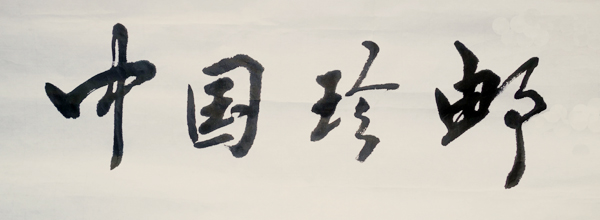 中国珍邮